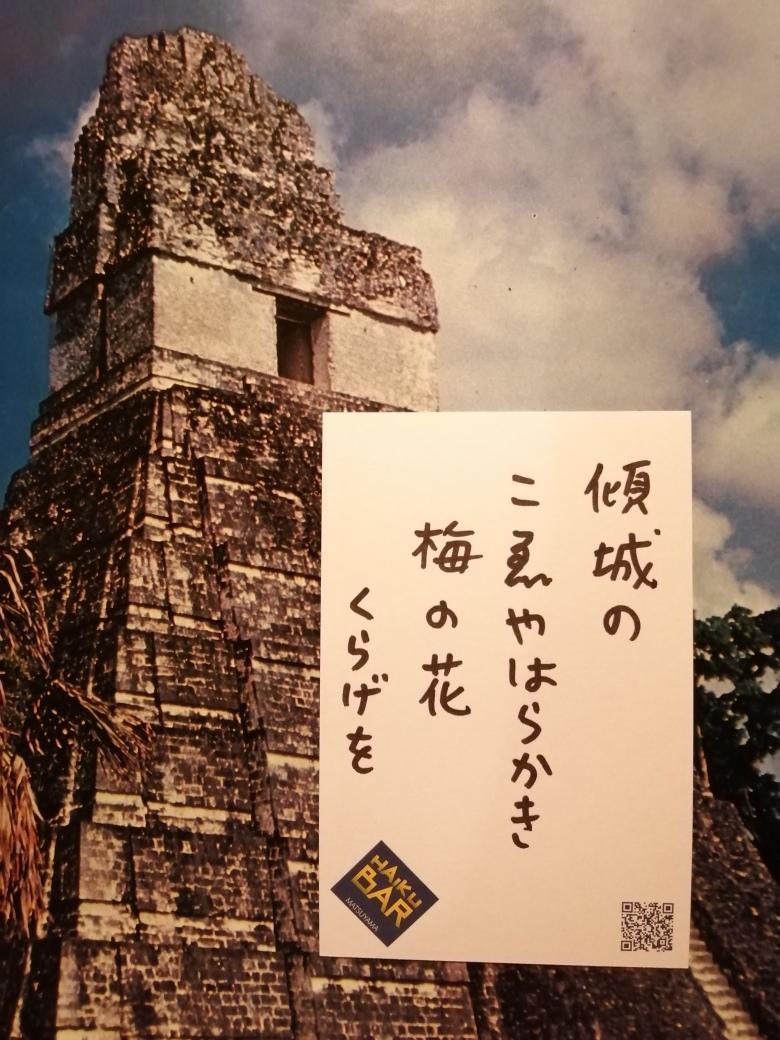 傾城の
こゑやはらかき
梅の花
くらげを
HAIKU
BAR
MATSUYAMA